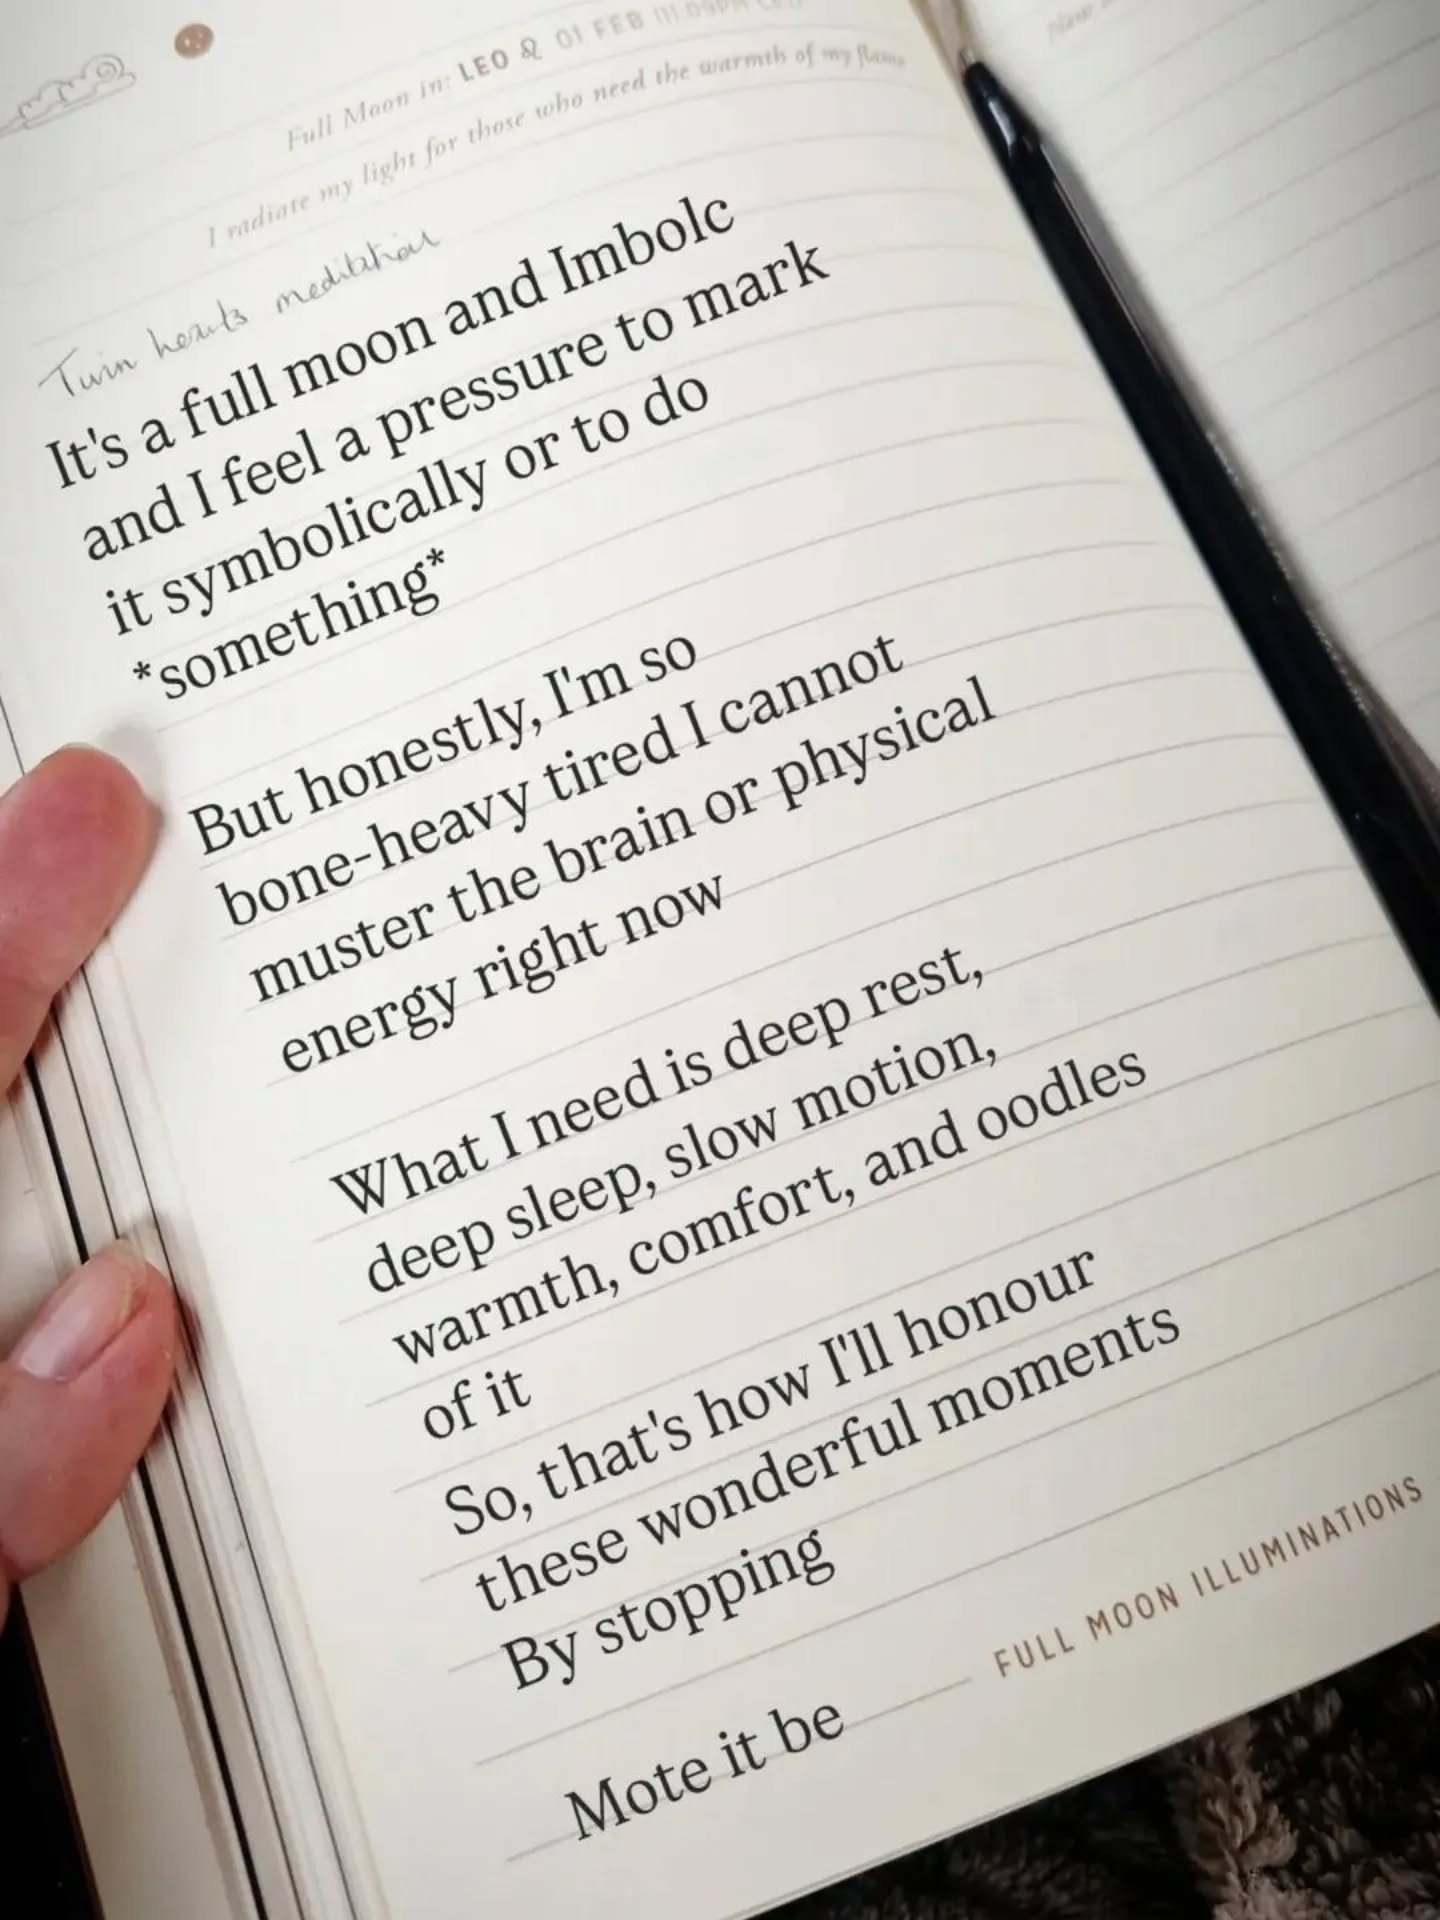 Full Moon in: LEO ♌ 01 FEB
I radiate my light for those who need the warmth of my flame
Twin hearts meditation
It's a full moon and Imbolc
and I feel a pressure to mark
it symbolically or to do
*something*
But honestly, I'm so
bone-heavy tired I cannot
muster the brain or physical
energy right now
What I need is deep rest,
deep sleep, slow motion,
warmth, comfort, and oodles
of it
So, that's how I'll honour
these wonderful moments
By stopping
Mote it be
FULL MOON ILLUMINATIONS